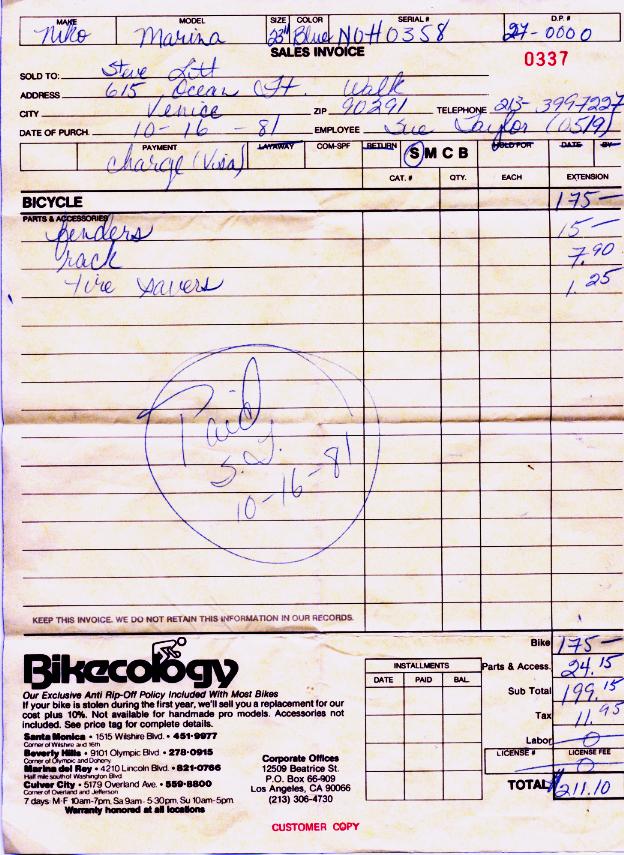 MAKE MODEL SIZE COLOR SERIAL # D.P. #
Niko Marina 23" Blue NOH0358 27-0000
SALES INVOICE 0337
SOLD TO: Steve Litt
ADDRESS 615 Ocean Ft. Walk
CITY Venice ZIP 90291 TELEPHONE 213-399-7227
DATE OF PURCH. 10-16-81 EMPLOYEE Sue Taylor (0519)
PAYMENT LAYAWAY COM-SPF RETURN S M C B HOLD FOR DATE BY
charge (Visa)
CAT. # QTY. EACH EXTENSION
BICYCLE 175—
PARTS & ACCESSORIES
fenders 15—
rack 7.90
tire savers 1.25
Paid
S.T.
10-16-81
KEEP THIS INVOICE. WE DO NOT RETAIN THIS INFORMATION IN OUR RECORDS.
Bikecology
Our Exclusive Anti Rip-Off Policy Included With Most Bikes
If your bike is stolen during the first year, we'll sell you a replacement for our
cost plus 10%. Not available for handmade pro models. Accessories not
included. See price tag for complete details.
Santa Monica • 1515 Wilshire Blvd. • 451-9977
Corner of Wilshire and 16th
Beverly Hills • 9101 Olympic Blvd. • 278-0915
Corner of Olympic and Doheny
Marina del Rey • 4210 Lincoln Blvd. • 821-0766
Half mile south of Washington Blvd
Culver City • 5179 Overland Ave. • 559-8800
Corner of Overland and Jefferson
7 days: M-F 10am-7pm, Sa 9am-5:30pm, Su 10am-5pm.
Warranty honored at all locations
Corporate Offices
12509 Beatrice St.
P.O. Box 66-909
Los Angeles, CA 90066
(213) 306-4730
INSTALLMENTS
DATE PAID BAL.
Bike 175—
Parts & Access. 24.15
Sub Total 199.15
Tax 11.95
Labor 0
LICENSE # LICENSE FEE
0
TOTAL $211.10
CUSTOMER COPY